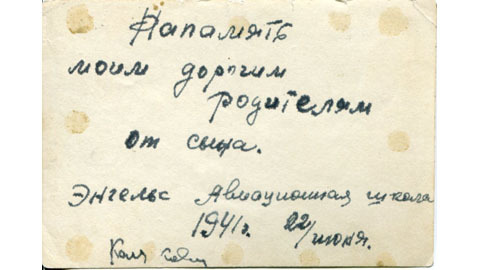 Напамять
моим дорогим
родителям
от сына.
Энгельс Авиационная школа
1941г. 22/июня.
Коля